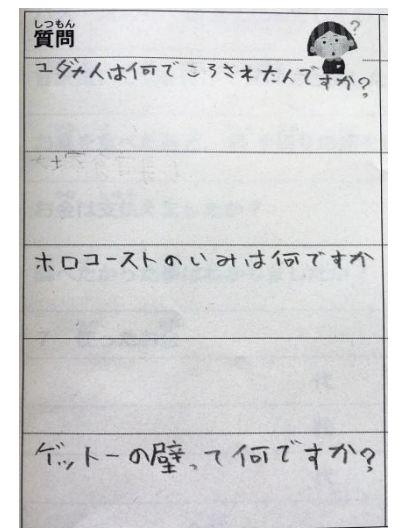 しつもん
質問
?
ユダヤ人は何でころされた人ですか?
ホロコーストのいみは何ですか
ゲットーの壁って何ですか?